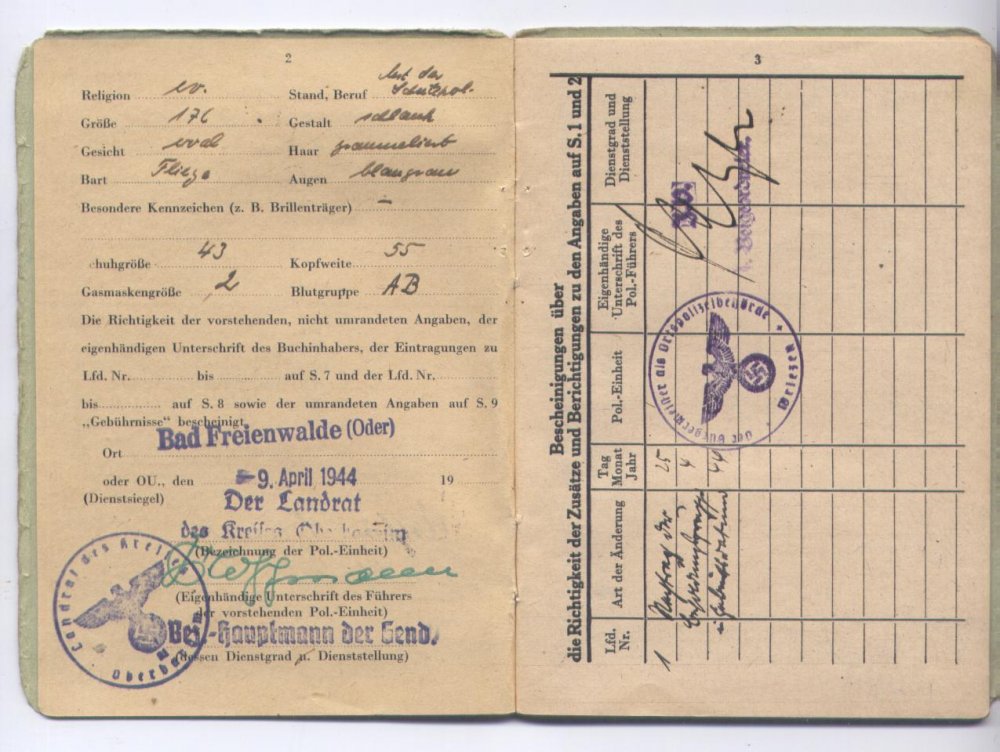 2
Religion ev. Stand, Beruf der Schutzpol.
Größe 176 Gestalt schlank
Gesicht oval Haar graumeliert
Bart Fliege Augen blaugrau
Besondere Kennzeichen (z. B. Brillenträger) –
chuhgröße 43 Kopfweite 55
Gasmaskengröße 2 Blutgruppe AB
Die Richtigkeit der vorstehenden, nicht umrandeten Angaben, der
eigenhändigen Unterschrift des Buchinhabers, der Eintragungen zu
Lfd. Nr. bis auf S. 7 und der Lfd. Nr.
bis auf S. 8 sowie der umrandeten Angaben auf S. 9
„Gebührnisse“ bescheinigt
Bad Freienwalde (Oder)
Ort
oder OU., den 9. April 1944 19
(Dienstsiegel)
Der Landrat
des Kreises
(Bezeichnung der Pol.-Einheit)
(Eigenhändige Unterschrift des Führers
der vorstehenden Pol.-Einheit)
Bez.-Hauptmann der Gend.
(dessen Dienstgrad u. Dienststellung)
Landrat des Kreises
3
Bescheinigungen über
die Richtigkeit der Zusätze und Berichtigungen zu den Angaben auf S. 1 und 2
Lfd. Nr.
Art der Änderung
Tag Monat Jahr
Pol.-Einheit
Eigenhändige Unterschrift des Pol.-Führers
Dienstgrad und Dienststellung
1
Nachtrag der
25 4 44
Der Bürgermeister als Ortspolizeibehörde
Wriezen
Beigeordneter